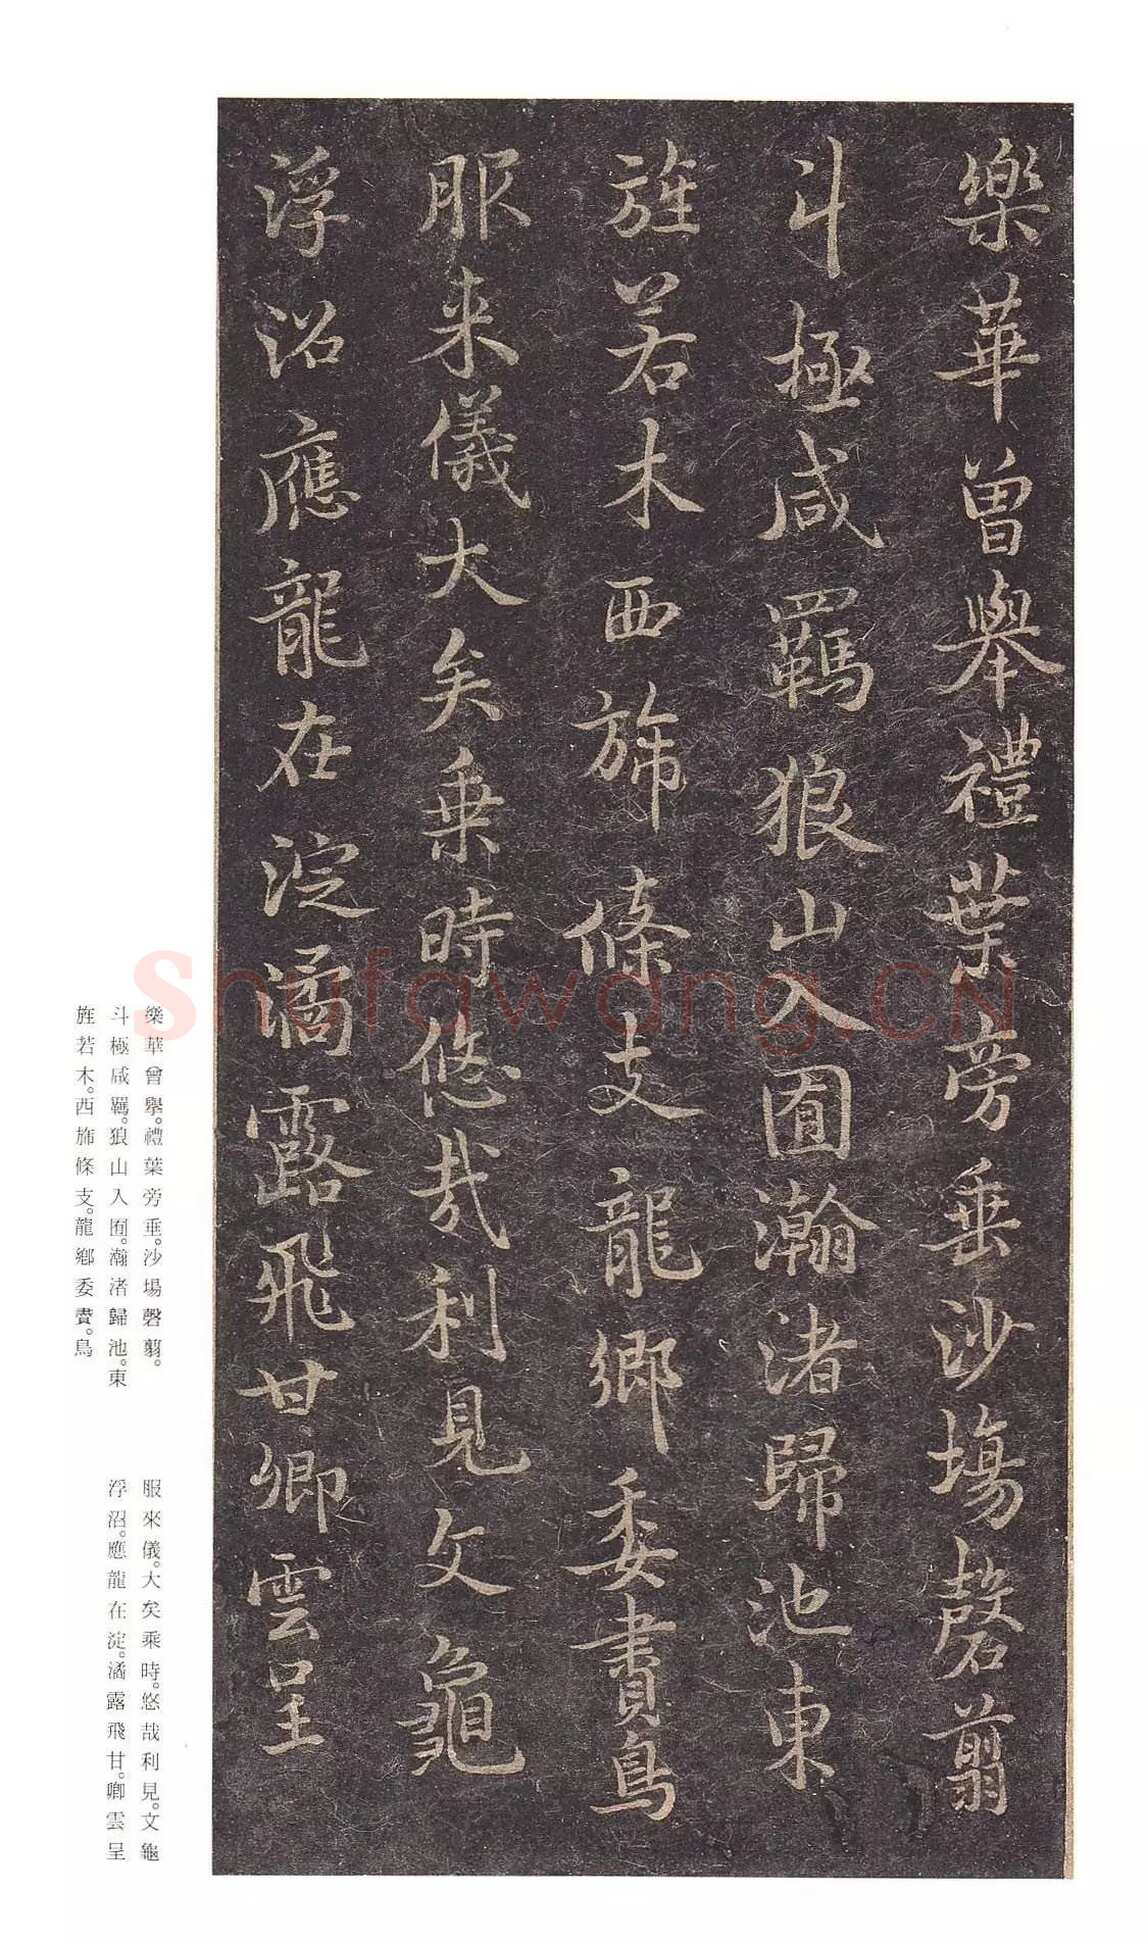 樂華曾舉禮葉旁垂沙塲磬翦
斗極咸羈狼山入囿瀚渚歸池東
旌若木西斾條支龍鄉委賮鳥
服来儀大矣乗時悠哉利見文龜
浮沼應龍在淀潏露飛甘卿雲呈
樂華曾舉。禮葉旁垂。沙場磬翦。
斗極咸羈。狼山入囿。瀚渚歸池。東
旌若木。西斾條支。龍鄉委賮。鳥
服來儀。大矣乘時。悠哉利見。文龜
浮沼。應龍在淀。潏露飛甘。卿雲呈
shufawang.CN